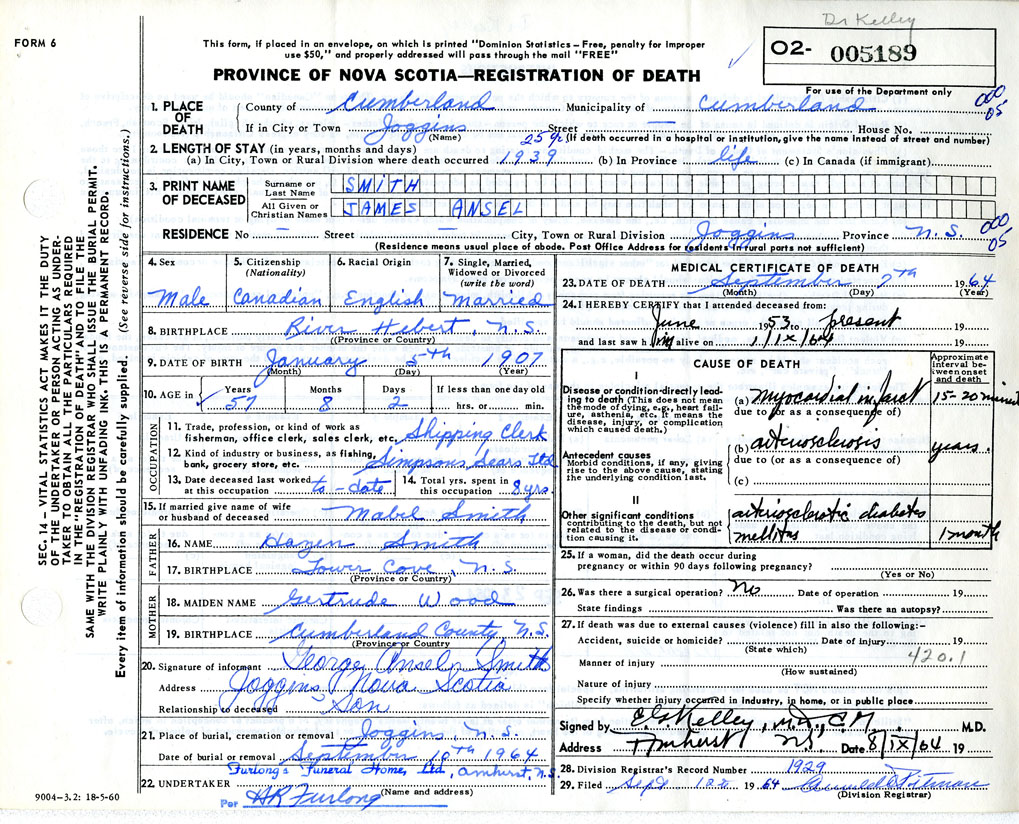 Dr Kelley
FORM 6
This form, if placed in an envelope, on which is printed "Dominion Statistics – Free, penalty for improper
use $50," and properly addressed will pass through the mail "FREE"
O2- 005189
PROVINCE OF NOVA SCOTIA—REGISTRATION OF DEATH
For use of the Department only
1. PLACE OF DEATH
County of Cumberland Municipality of Cumberland
000
05
If in City or Town Joggins Street — House No.
(Name) (If death occurred in a hospital or institution, give the name instead of street and number)
2. LENGTH OF STAY (in years, months and days)
(a) In City, Town or Rural Division where death occurred 1939 (b) In Province life (c) In Canada (if immigrant)
3. PRINT NAME OF DECEASED
Surname or Last Name SMITH
All Given or Christian Names JAMES ANSEL
RESIDENCE No – Street – City, Town or Rural Division Joggins Province N.S.
000
05
(Residence means usual place of abode. Post Office Address for residents in rural parts not sufficient)
4. Sex
Male
5. Citizenship (Nationality)
Canadian
6. Racial Origin
English
7. Single, Married, Widowed or Divorced (write the word)
Married
8. BIRTHPLACE River Hebert, N.S.
(Province or Country)
9. DATE OF BIRTH January 5th 1907
(Month) (Day) (Year)
10. AGE in Years Months Days If less than one day old
57 8 2 hrs. or min.
OCCUPATION
11. Trade, profession, or kind of work as
fisherman, office clerk, sales clerk, etc. Shipping Clerk
12. Kind of industry or business, as fishing,
bank, grocery store, etc. Simpsons Sears Ltd
13. Date deceased last worked
at this occupation to-date
14. Total yrs. spent in
this occupation 8 yrs.
15. If married give name of wife
or husband of deceased Mabel Smith
FATHER
16. NAME Hazen Smith
17. BIRTHPLACE Lower Cove, N.S.
(Province or Country)
MOTHER
18. MAIDEN NAME Gertrude Wood
19. BIRTHPLACE Cumberland County, N.S.
(Province or Country)
20. Signature of informant George Anseln Smith
Address Joggins Nova Scotia
Relationship to deceased Son
21. Place of burial, cremation or removal Joggins, N.S.
Date of burial or removal September 10th 1964
Furlong's Funeral Home, Ltd, Amherst, N.S.
22. UNDERTAKER (Name and address)
Per HR Furlong
9004–3.2: 18-5-60
MEDICAL CERTIFICATE OF DEATH
23. DATE OF DEATH September 7th 1964
(Month) (Day) (Year)
24. I HEREBY CERTIFY that I attended deceased from:
June 1953 to present 19
and last saw him alive on 1/IX/64 19
CAUSE OF DEATH
Approximate interval between onset and death
I
Disease or condition directly leading to death (This does not mean the mode of dying, e.g., heart failure, asthenia, etc. It means the disease, injury, or complication which caused death.)
(a) myocardial infarct 15-20 minutes
due to (or as a consequence of)
Antecedent causes
Morbid conditions, if any, giving rise to the above cause, stating the underlying condition last.
(b) arteriosclerosis years.
due to (or as a consequence of)
(c)
II
Other significant conditions
contributing to the death, but not related to the disease or condition causing it.
arteriosclerotic diabetes
mellitus 1 month
25. If a woman, did the death occur during
pregnancy or within 90 days following pregnancy?
(Yes or No)
26. Was there a surgical operation? No Date of operation 19
State findings Was there an autopsy?
27. If death was due to external causes (violence) fill in also the following:–
Accident, suicide or homicide? Date of injury 19
(State which)
420.1
Manner of injury
(How sustained)
Nature of injury
Specify whether injury occurred in Industry, in home, or in public place
Signed by E G Kelley, M.D., C.M. M.D.
Address Amherst N.S. Date 8/IX/64 19
28. Division Registrar's Record Number 1929
29. Filed Sept 1964
(Division Registrar)
SEC. 14 – VITAL STATISTICS ACT MAKES IT THE DUTY
OF THE UNDERTAKER OR PERSON ACTING AS UNDER-
TAKER TO OBTAIN ALL THE PARTICULARS REQUIRED
IN THE "REGISTRATION OF DEATH" AND TO FILE THE
SAME WITH THE DIVISION REGISTRAR WHO SHALL ISSUE THE BURIAL PERMIT.
WRITE PLAINLY WITH UNFADING INK. THIS IS A PERMANENT RECORD.
Every item of information should be carefully supplied. (See reverse side for instructions.)